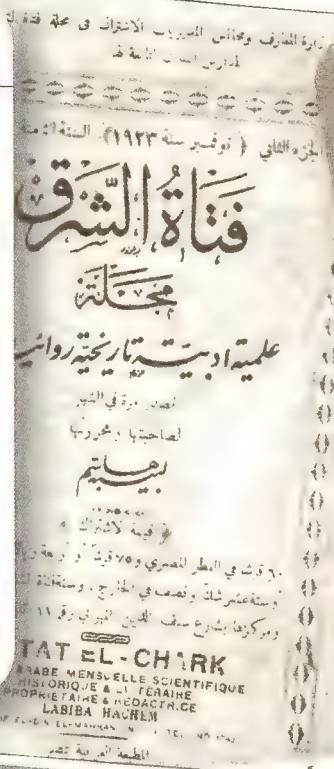 وزارة المعارف ومجالس المديريات الاشتراك في مجلة فتاة
الجزء الثاني ( نوفمبر سنة ١٩٢٣ ) السنة
فتاة الشرق
مجلة
علمية ادبية تاريخية روائية
تصدر مرة في الشهر
لصاحبتها ومحررتها
لبيبه هاشم
قيمة الاشتراك
٦٠ قرشاً في القطر المصري و ٧٥ قرشاً او اربعة
وستة عشر شلناً ونصف في الخارج .
ومركزها بشارع سيف الدين المهراني رقم ١١
TAT EL-CHARK
ARABE MENSUELLE SCIENTIFIQUE
HISTORIQUE & LITTERAIRE
PROPRIETAIRE & REDACTRICE
LABIBA HACHEM
EL-MAHRANI TEL. NO
المطبعة العربية بمصر